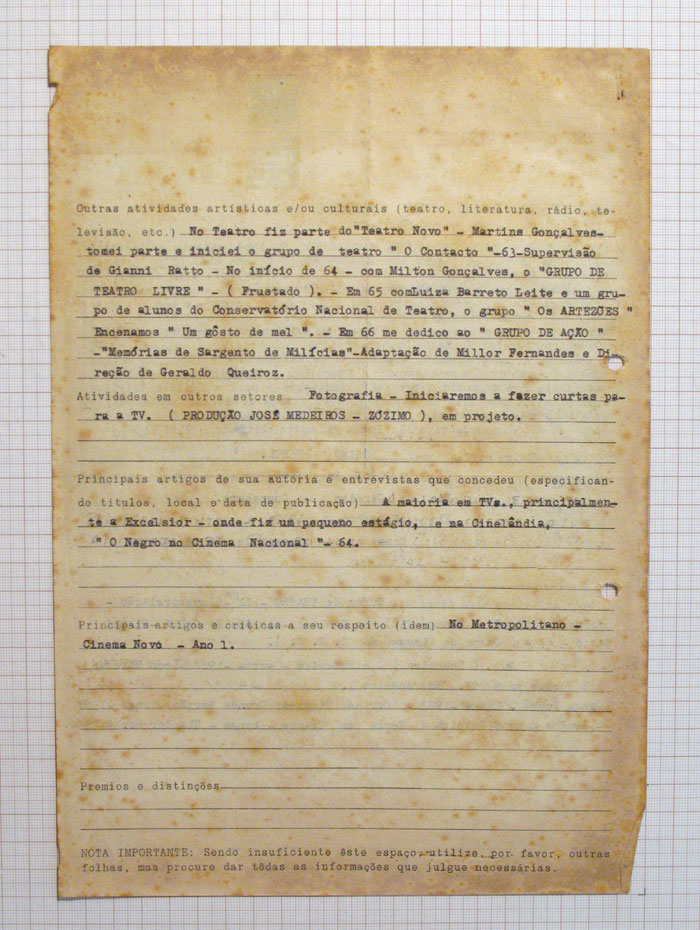 Outras atividades artísticas e/ou culturais (teatro, literatura, rádio, te-
levisão, etc.) No Teatro fiz parte do"Teatro Novo" - Martins Gonçalves-
tomei parte e iniciei o grupo de teatro " O Contacto "-63-Supervisão
de Gianni Ratto - No início de 64 - com Milton Gonçalves, o "GRUPO DE
TEATRO LIVRE " - ( Frustado ). - Em 65 comLuiza Barreto Leite e um gru-
po de alunos do Conservatório Nacional de Teatro, o grupo " Os ARTEZÕES "
Encenamos " Um gôsto de mel ". - Em 66 me dedico ao " GRUPO DE AÇÃO "
-"Memórias de Sargento de Milícias"-Adaptação de Millor Fernandes e Di-
reção de Geraldo Queiroz.
Atividades em outros setores Fotografia - Iniciaremos a fazer curtas pa-
ra a TV. ( PRODUÇÃO JOSÉ MEDEIROS - ZÓZIMO ), em projeto.
Principais artigos de sua autoria e entrevistas que concedeu (especifican-
do títulos, local e data de publicação) A maioria em TVs., principalmen-
te a Excelsior - onde fiz um pequeno estágio, e na Cinelândia,
" O Negro no Cinema Nacional "- 64.
Principais artigos e críticas a seu respeito (idem) No Metropolitano -
Cinema Novo - Ano 1.
Premios e distinções
NOTA IMPORTANTE: Sendo insuficiente êste espaço, utilize, por favor, outras
folhas, mas procure dar tôdas as informações que julgue necessárias.